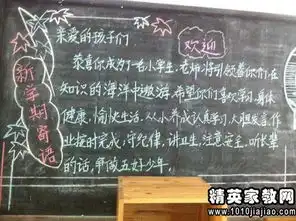 新学期寄语
欢迎
亲爱的孩子们
恭喜你成为了一名小学生,老师将引领着你们,在
知识的海洋中遨游,希望你们喜欢学习,身体
健康,愉快生活,从小养成认真学习,大胆发言,作
业按时完成,守纪律,讲卫生,注意安全,听长辈
的话,争做五好少年。
精英家教网
http://www.1010jiajiao.com/